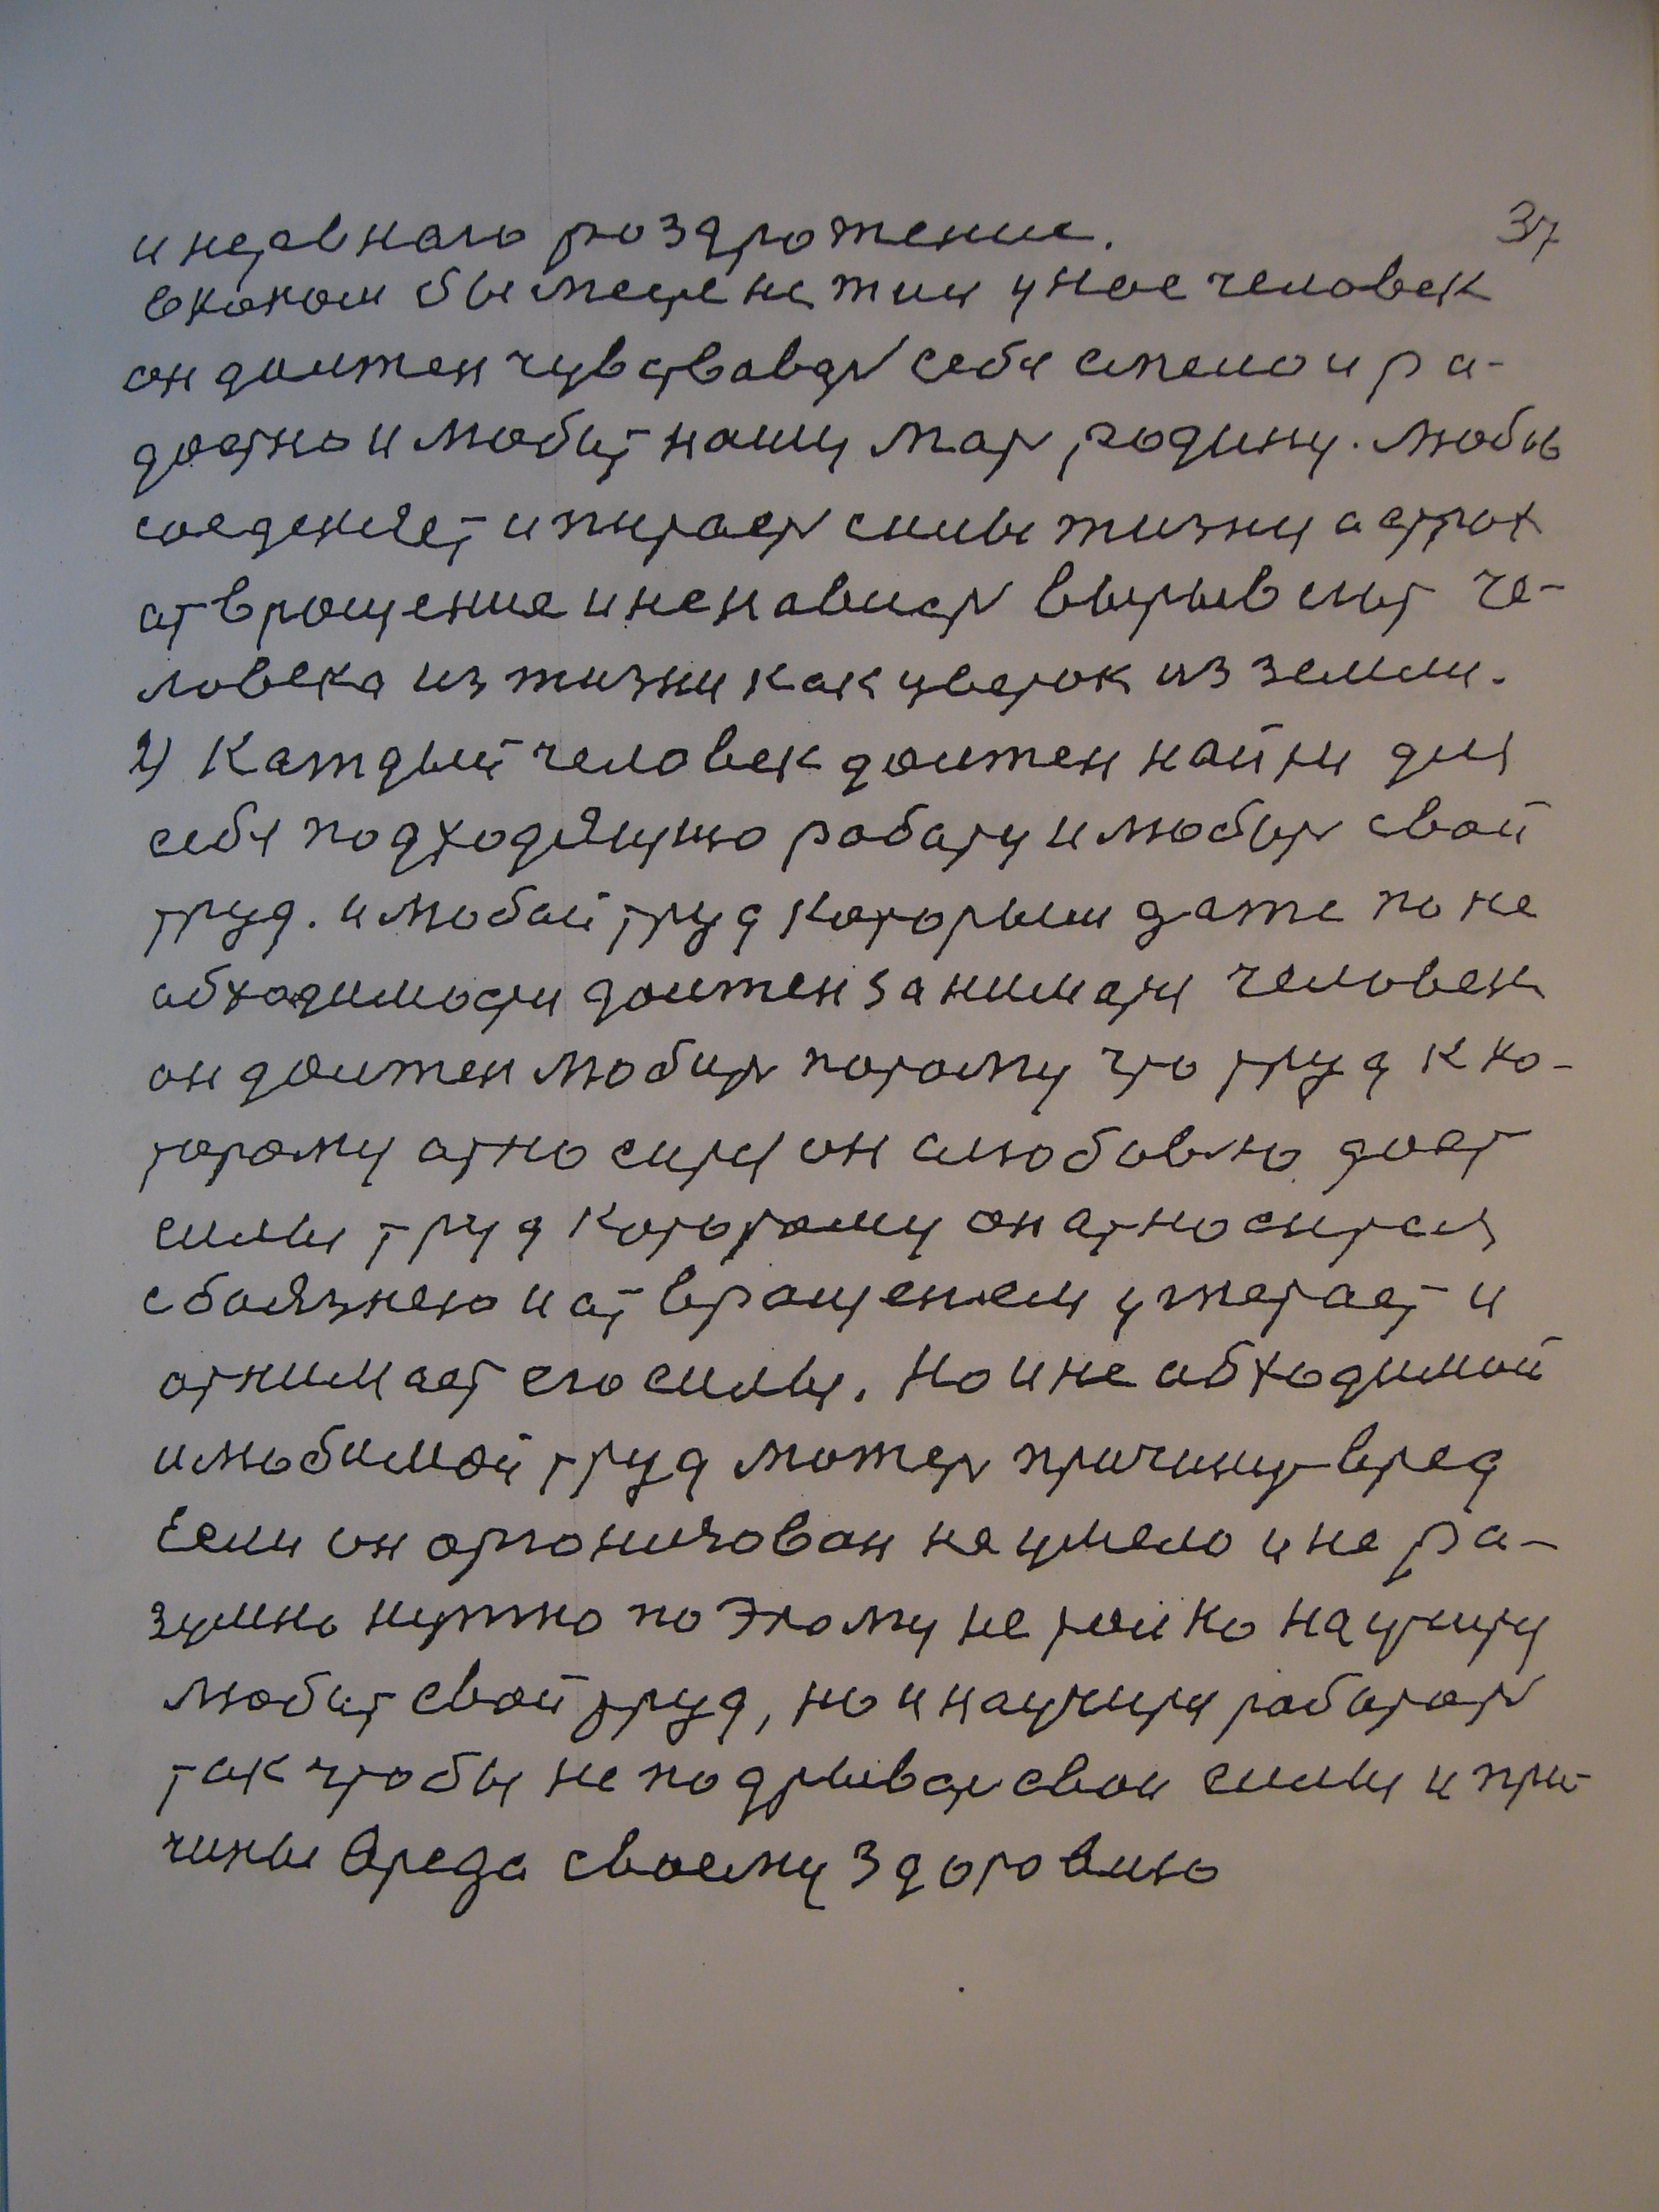 и нервного роздрожение. 37
в коком бы месте не жил у нас человек
он должен чувствавать себя смело и ра-
достно и любит нашу мать родину. любовь
соеденяет и питаеть силы жизни а страх
атврощение и ненависть вырывают че-
ловека из жизни как цветок из земли.
2) Каждый человек должен найти для
себя подходящую работу и любить свой
труд. и любой труд которым даже по не
абходимости должен заниматя человек
он должен любить потому что труд к ко-
торому относитя он слюбовью дает
силы труд которому он относится
с боязнею и атврощением угнетает и
отнимает его силы. Но и не абходимой
и любимой труд можеть причинит вред
Если он оргонизован не умело и не ра-
зумно нужно по этому не толко научитя
любит свой труд, но и научитя работать
так чтобы не подрывать свои силы и при-
чины вреда своему здоровию